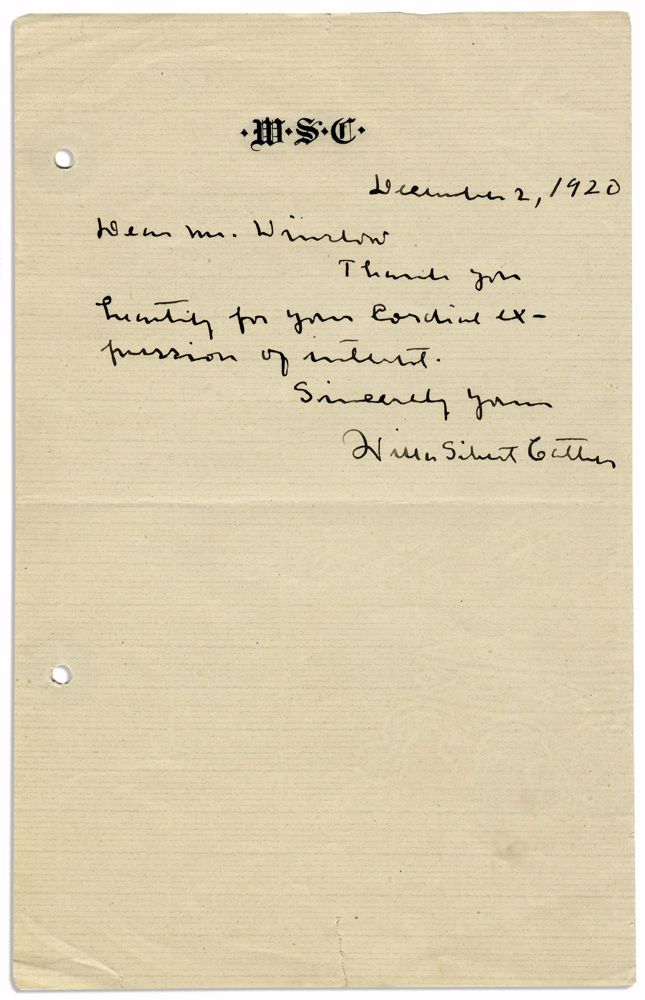 ·W·S·C·
December 2, 1920
Dear Mr. Winslow
Thank you
heartily for your cordial ex-
pression of interest.
Sincerely yours
Willa Sibert Cather